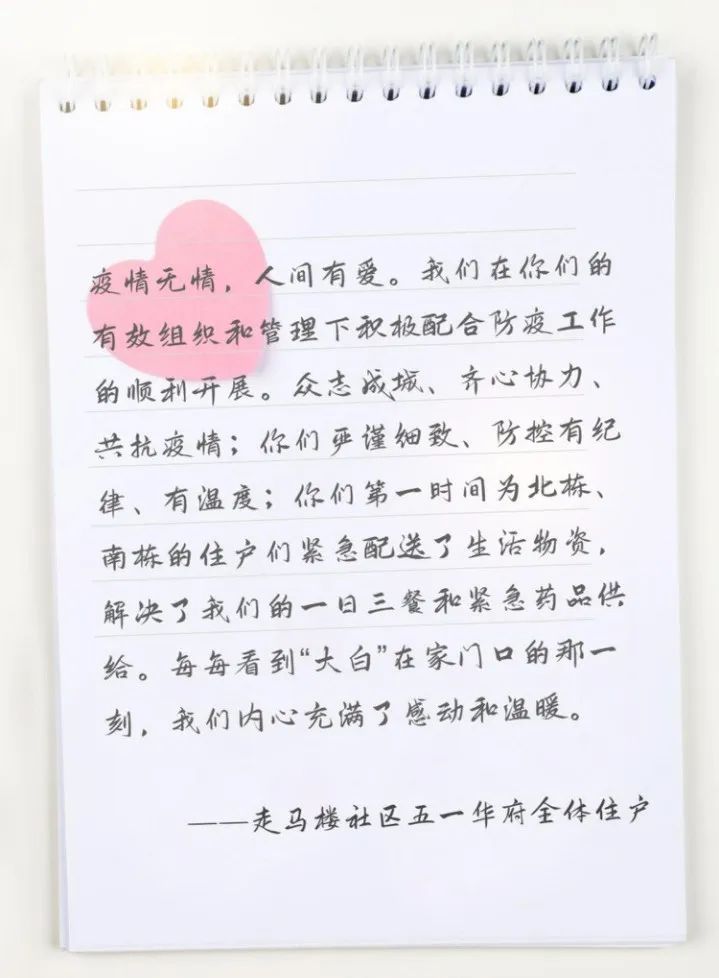 疫情无情，人间有爱。我们在你们的
有效组织和管理下积极配合防疫工作
的顺利开展。众志成城、齐心协力、
共抗疫情；你们严谨细致、防控有纪
律、有温度；你们第一时间为北栋、
南栋的住户们紧急配送了生活物资，
解决了我们的一日三餐和紧急药品供
给。每每看到“大白”在家门口的那一
刻，我们内心充满了感动和温暖。
——走马楼社区五一华府全体住户